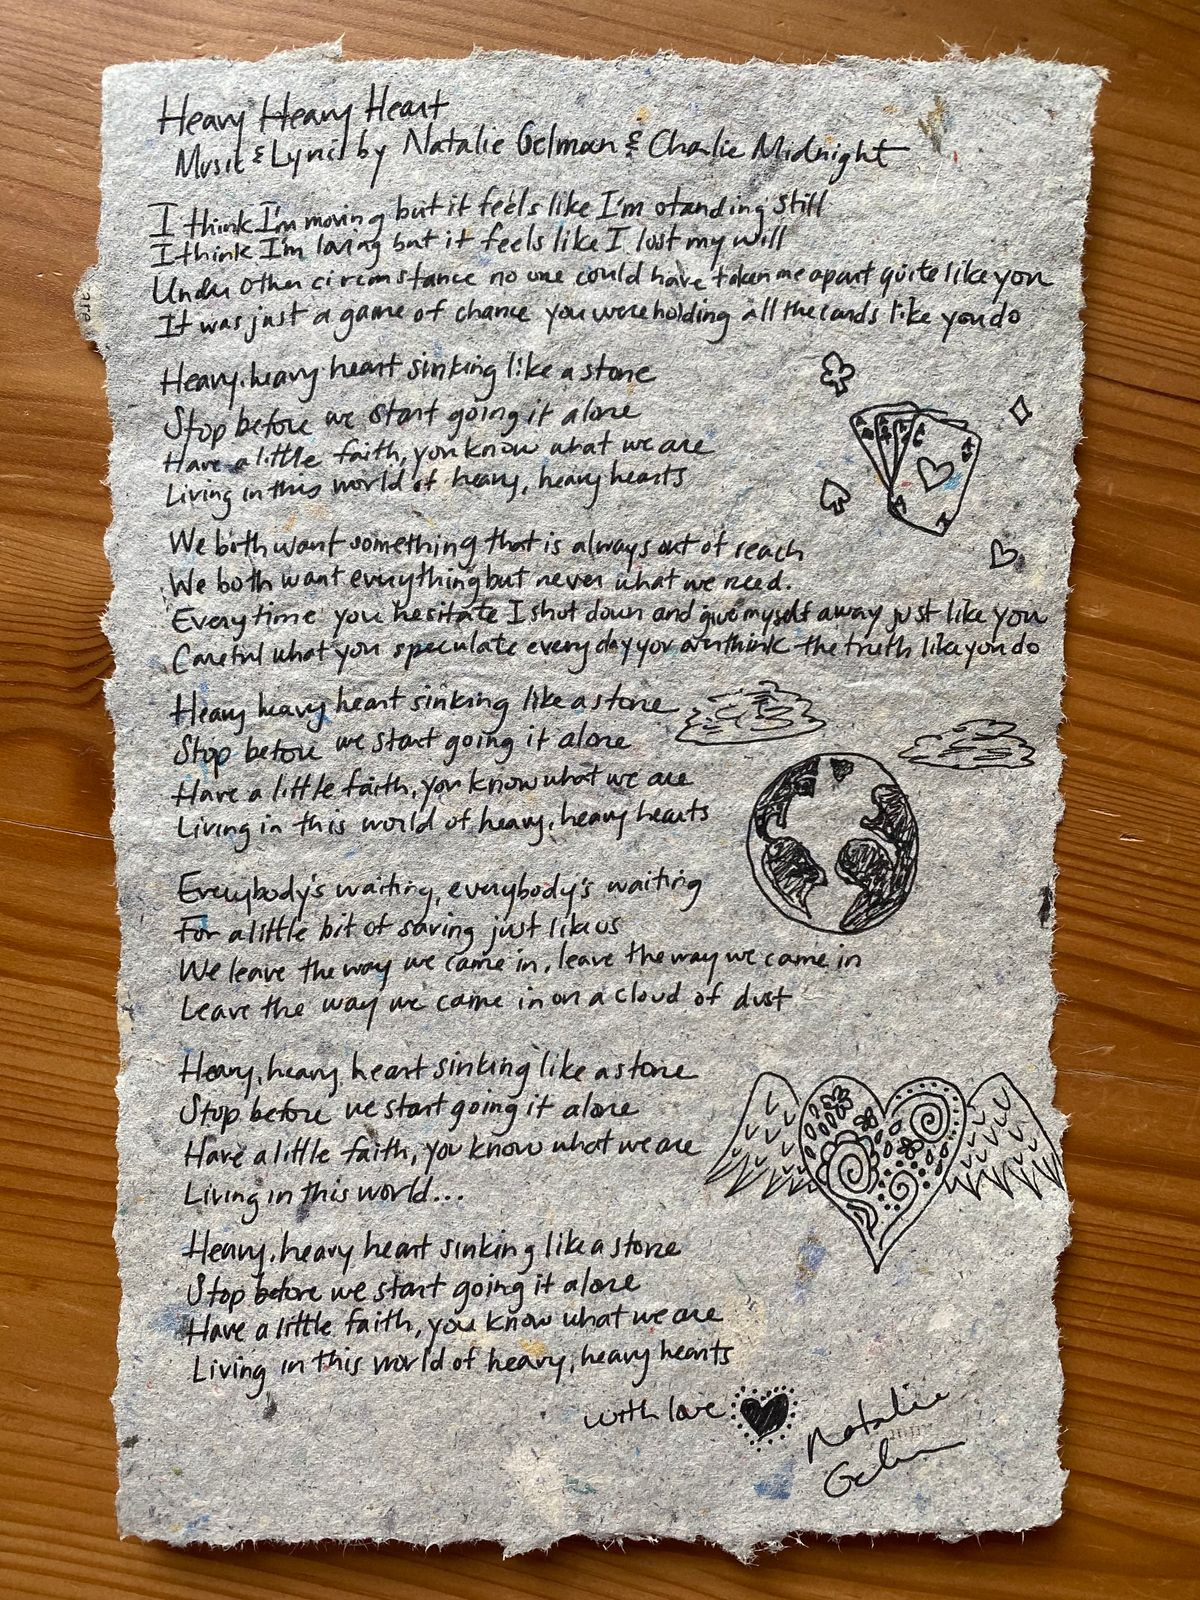 Heavy Heavy Heart
Music & Lyrics by Natalie Gelman & Charlie Midnight
I think I'm moving but it feels like I'm standing still
I think I'm loving but it feels like I lost my will
Under other circumstance no one could have taken me apart quite like you
It was just a game of chance you were holding all the cards like you do
Heavy, heavy heart sinking like a stone
Stop before we start going it alone
Have a little faith, you know what we are
Living in this world of heavy, heavy hearts
We both want something that is always out of reach
We both want everything but never what we need.
Every time you hesitate I shut down and give myself away just like you
Careful what you speculate every day you overthink the truth like you do
Heavy heavy heart sinking like a stone
Stop before we start going it alone
Have a little faith, you know what we are
Living in this world of heavy, heavy hearts
Everybody's waiting, everybody's waiting
For a little bit of saving just like us
We leave the way we came in, leave the way we came in
Leave the way we came in on a cloud of dust
Heavy, heavy heart sinking like a stone
Stop before we start going it alone
Have a little faith, you know what we are
Living in this world...
Heavy, heavy heart sinking like a stone
Stop before we start going it alone
Have a little faith, you know what we are
Living in this world of heavy, heavy hearts
with love
Natalie
Gelman